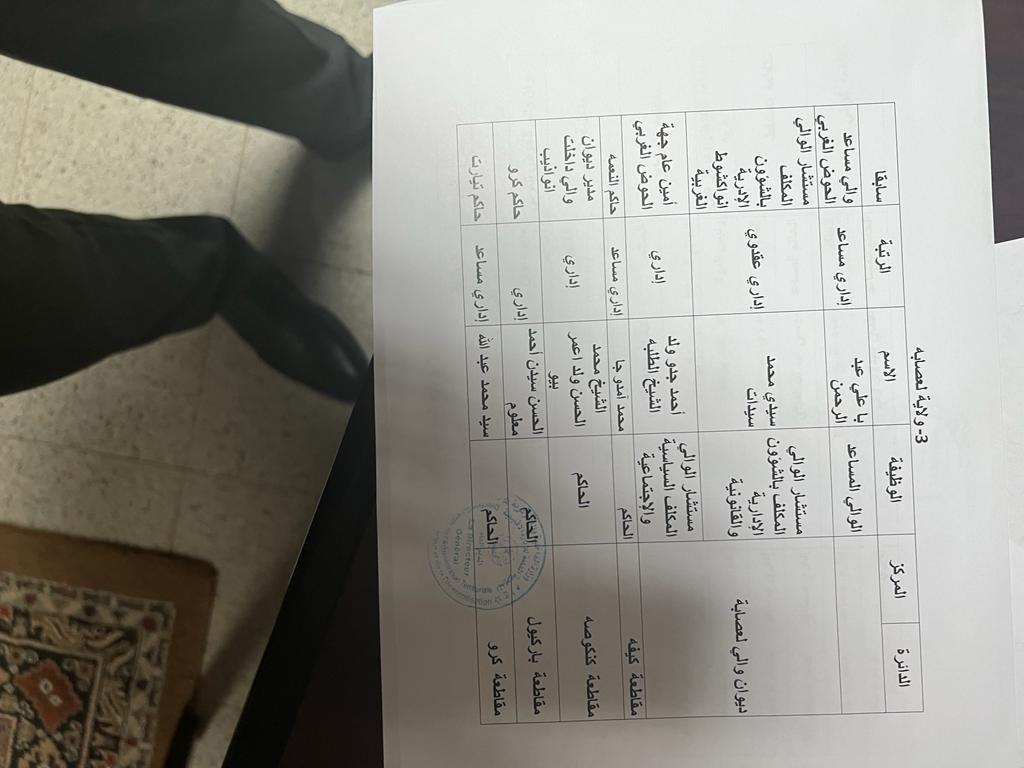 3- ولاية لعصابه
الدائرة المركز الوظيفة الاسم الرتبة سابقا
ديوان والي لعصابة
الوالي المساعد
با علي عبد
الرحمن
إداري مساعد
والي مساعد
الحوض الغربي
مستشار الوالي
المكلف بالشؤون
الإدارية
والقانونية
سيدي محمد
سيدات
إداري عقدوي
مستشار الوالي
المكلف
بالشؤون
الإدرية
انواكشوط
الغربية
مستشار الوالي
المكلف السياسية
والإجتماعية
أحمد جدو ولد
الشيخ الطلبه
إداري
أمين عام جهة
الحوض الغربي
مقاطعة كيفه
الحاكم
محمد أمدو جا
إداري مساعد
حاكم النعمه
مقاطعة كنكوصه
الحاكم
الشيخ محمد
الحسن ولد أعمر
بيو
إداري
مدير ديوان
والي داخلت
انواذيب
مقاطعة باركيول
الحاكم
الحسن سيدن أحمد
معلوم
إداري
حاكم كرو
مقاطعة كرو
الحاكم
سيد محمد عبد الله
إداري مساعد
حاكم تيارت
Le Directeur
Général